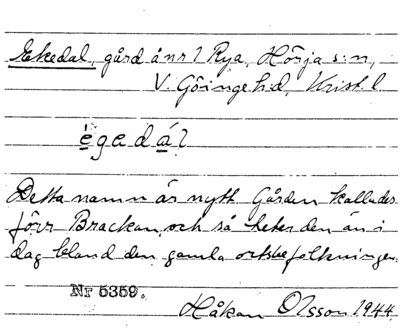 Ekedal, gård å nr 1 Rya, Hörja s:n,
V. Göinge hd, Krist. l
ègedál
Detta namn är nytt. Gården kallades
förr Brackan, och så heter den än i
dag bland den gamla ortsbefolkningen.
Nr 5359.
Håkan Olsson 1944.